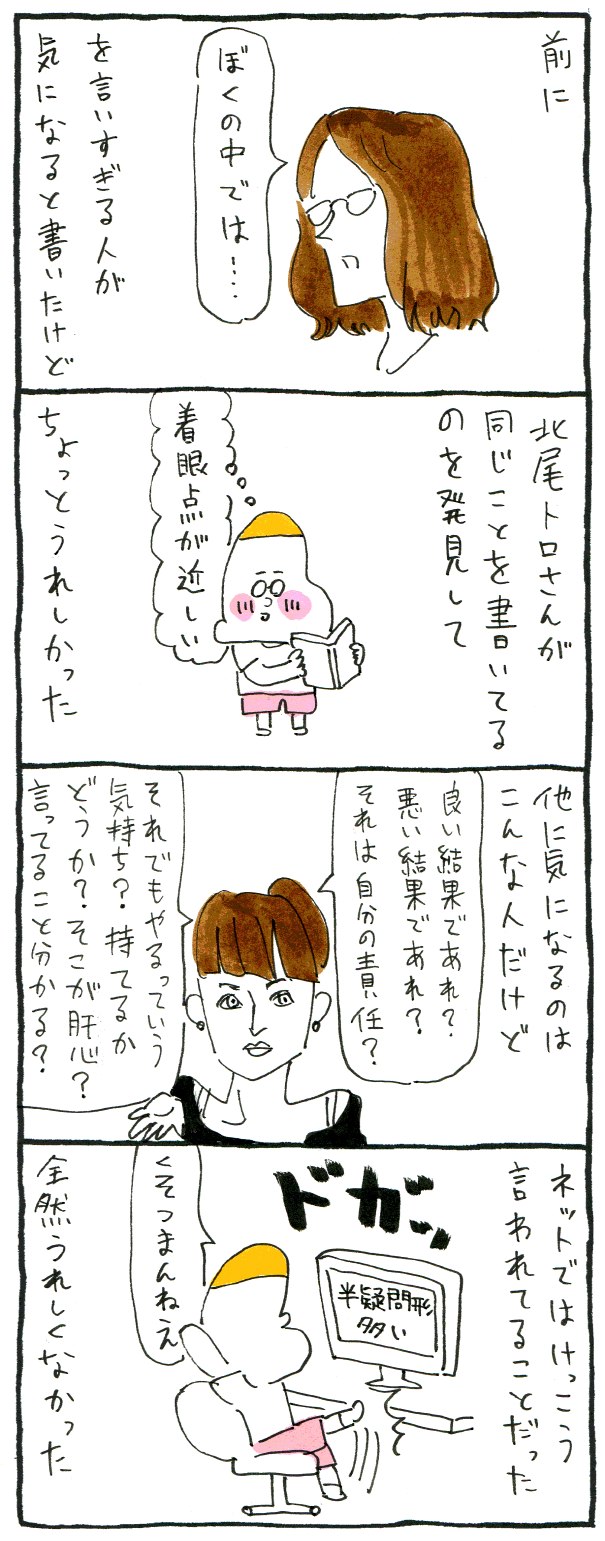 前に
ぼくの中では‥‥
を言いすぎる人が
気になると書いたけど
北尾トロさんが
同じことを書いてる
のを発見して
着眼点が近しい
ちょっとうれしかった
他に気になるのは
こんな人だけど
良い結果であれ?
悪い結果であれ?
それは自分の責任?
それでもやるっていう
気持ち? 持てるか
どうか? そこが肝心?
言ってること分かる?
ネットではけっこう
言われてることだった
ドガッ
半疑問形
多い
くそつまんねえ
全然うれしくなかった